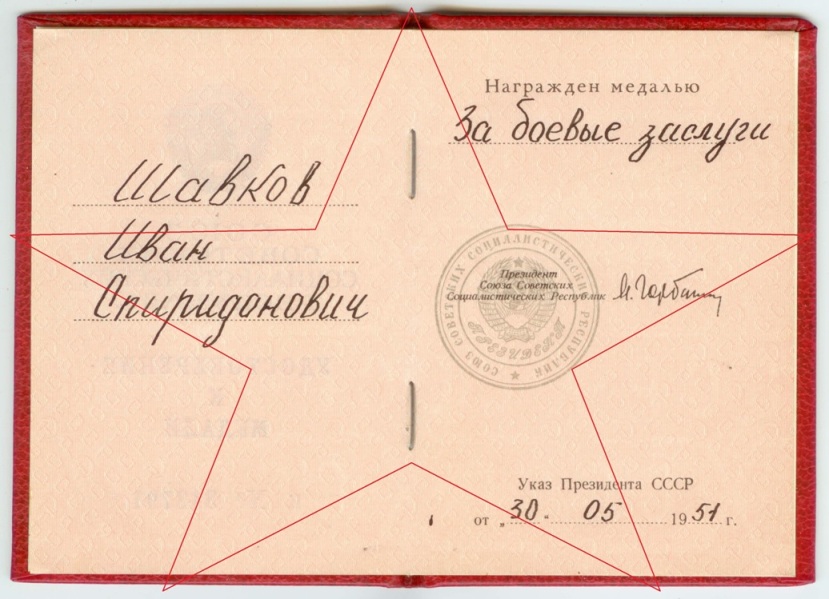 Шавков
Иван
Спиридонович
Награжден медалью
За боевые заслуги
СОЮЗ СОВЕТСКИХ СОЦИАЛИСТИЧЕСКИХ РЕСПУБЛИК
ПРЕЗИДЕНТ
Президент
Союза Советских
Социалистических Республик
М. Горбачев
Указ Президента СССР
от „30“ 05 1951 г.